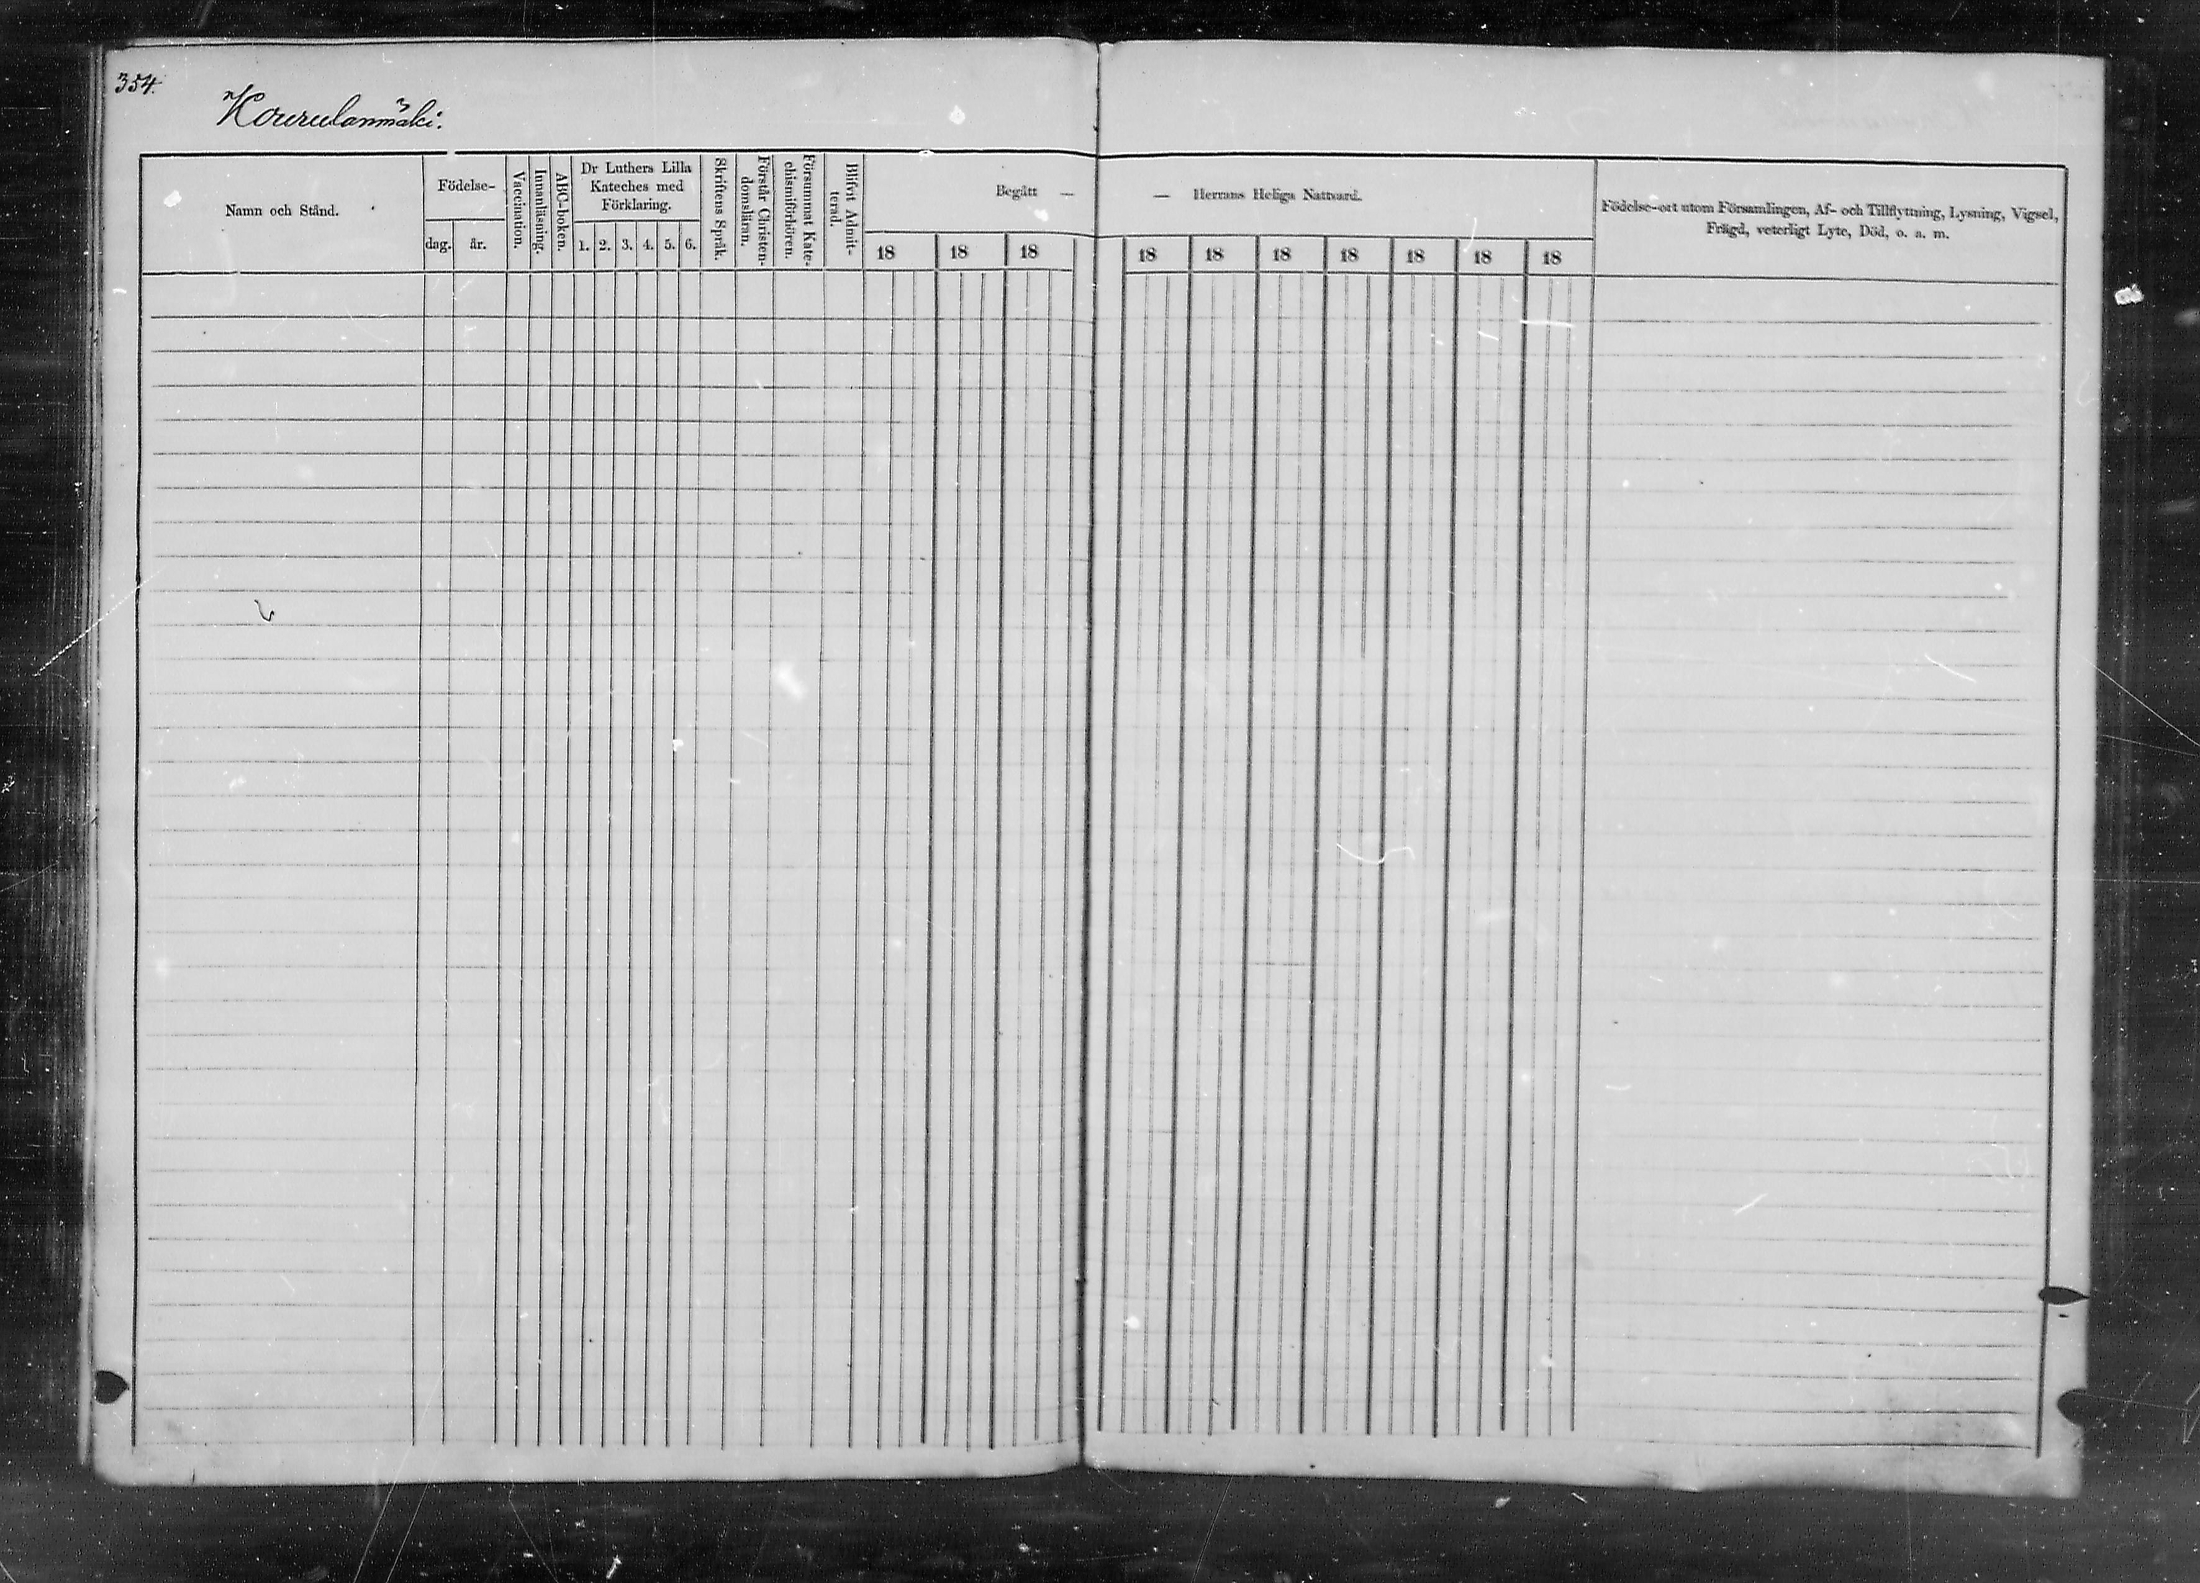 354.
Kourulanmäki.
Namn och Stånd.
Födelse-
dag.
år.
Vaccination.
Innanläsning.
ABC-boken.
Dr Luthers Lilla
Kateches med
Förklaring.
1. 2. 3. 4. 5. 6.
Skriftens Språk.
Förstår Christen-
domsläran.
Försummat Kate-
chismiförhören.
Blifvit Admit-
terad.
Begått —
18 18 18
— Herrans Heliga Nattvard.
18 18 18 18 18 18 18
Födelse-ort utom Församlingen, Af- och Tillflyttning, Lysning, Vigsel,
Frägd, veterligt Lyte, Död, o. a. m.